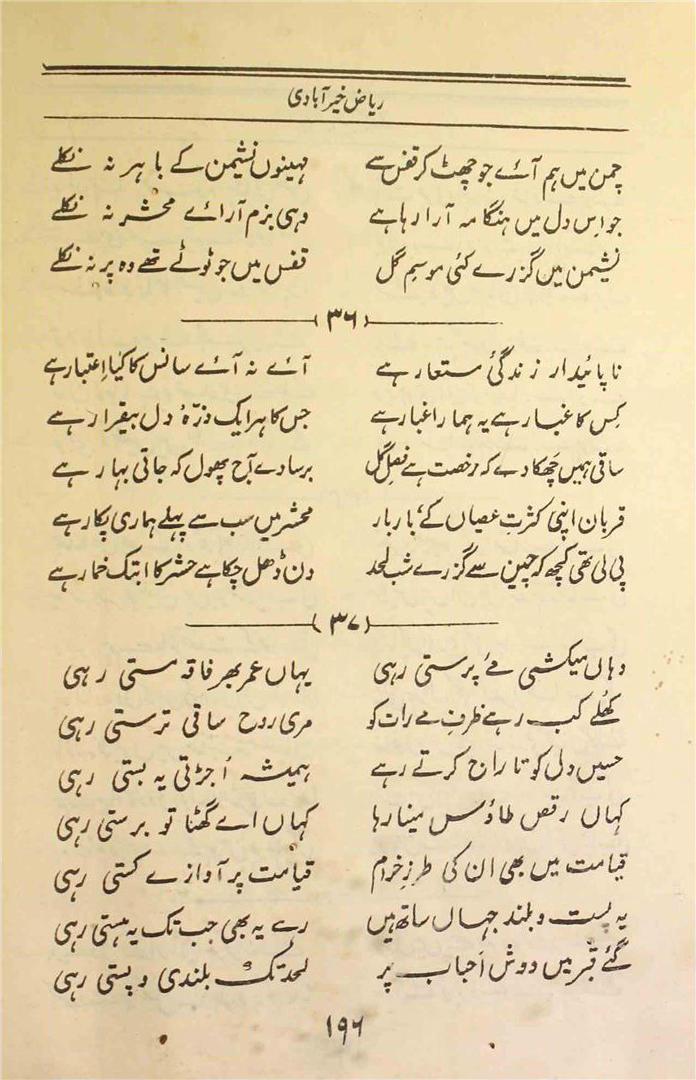 ریاض خیرآبادی
چمن میں ہم آئے جو چھٹ کر قفس سے مہینوں نشیمن کے باہر نہ نکلے
جو اس دل میں ہنگامہ آرا رہا ہے وہی بزم آرائے محشر نہ نکلے
نشیمن میں گزرے کئی موسمِ گل قفس میں جو ٹوٹے تھے وہ پر نہ نکلے
(۳۶)
ناپائیدار زندگیٔ مستعار ہے آئے نہ آئے سانس کا کیا اعتبار ہے
کِس کا غبار ہے یہ ہمارا غبار ہے جس کا ہر ایک ذرّۂ دل بیقرار ہے
ساقی ہمیں چھکا دے کہ رخصت ہے فصلِ گل برسا دے آج پھول کہ جاتی بہار ہے
قربان اپنی کثرتِ عصیاں کے بار بار محشر میں سب سے پہلے ہماری پکار ہے
پی لی تھی کچھ کہ چین سے گزرے شبِ لحد دن ڈھل چکا ہے حشر کا ابتک خمار ہے
(۳۷)
وہاں میکشی مے پرستی رہی یہاں عمر بھر فاقہ مستی رہی
کھلے کب رہے ظرفِ مے رات کو مری روح ساقی ترستی رہی
حسیں دلی کو تاراج کرتے رہے ہمیشہ اُجڑتی یہ بستی رہی
کہاں رقص طاؤس مینا رہا کہاں اے گھٹا تو برستی رہی
قیامت میں بھی ان کی طرزِ خرام قیامت پر آوازے کستی رہی
یہ پست و بلند جہاں ساتھ ہیں رہے یہ بھی جب تک یہ ہستی رہی
گئے قبر میں دوش اَحباب پر لحد تک بلندی و پستی رہی
۱۹۶